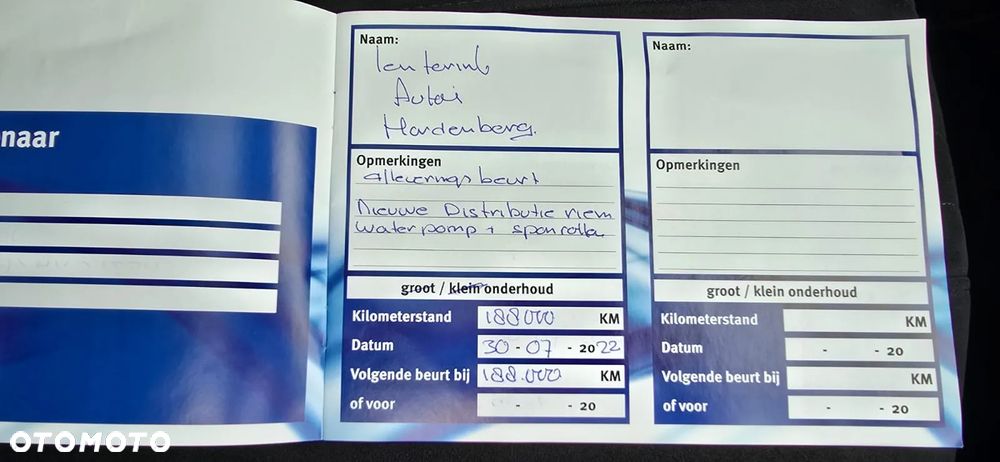 naar
Naam:
Autoi
Hardenberg.
Opmerkingen
Afleverings beurt
Nieuwe Distributie riem
Waterpomp + spanrolla
groot / klein onderhoud
Kilometerstand 188000 KM
Datum 30 - 07 - 2022
Volgende beurt bij 188.000 KM
of voor - - 20
Naam:
Opmerkingen
groot / klein onderhoud
Kilometerstand KM
Datum - - 20
Volgende beurt bij KM
of voor - - 20
OTOMOTO